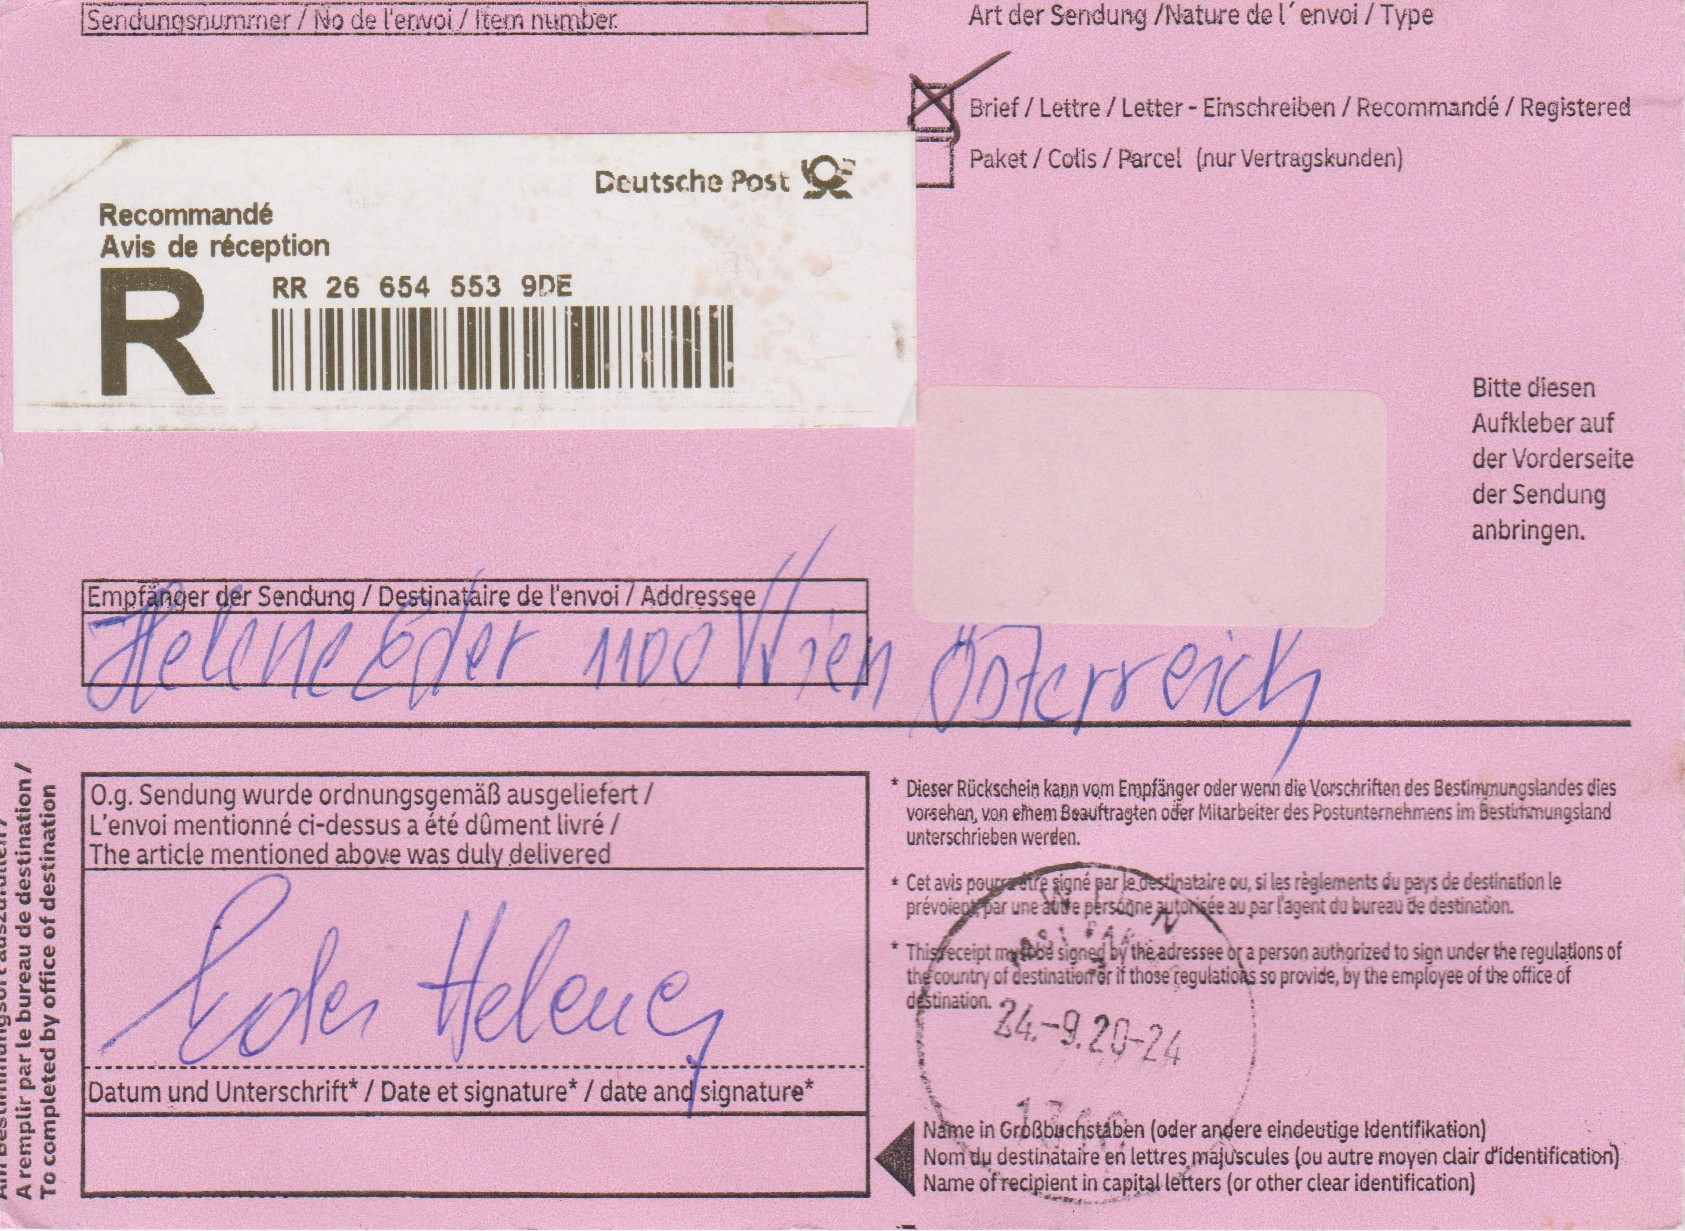 Sendungsnummer / No de l'envoi / Item number
Art der Sendung /Nature de l´envoi / Type
Brief / Lettre / Letter - Einschreiben / Recommandé / Registered
Paket / Colis / Parcel (nur Vertragskunden)
Deutsche Post
Recommandé
Avis de réception
R
RR 26 654 553 9DE
Bitte diesen
Aufkleber auf
der Vorderseite
der Sendung
anbringen.
Empfänger der Sendung / Destinataire de l'envoi / Addressee
Helene Eder 1100 Wien Österreich
A remplir par le bureau de destination /
To completed by office of destination
O.g. Sendung wurde ordnungsgemäß ausgeliefert /
L'envoi mentionné ci-dessus a été dûment livré /
The article mentioned above was duly delivered
Eder Helene
Datum und Unterschrift* / Date et signature* / date and signature*
* Dieser Rückschein kann vom Empfänger oder wenn die Vorschriften des Bestimmungslandes dies
vorsehen, von einem Beauftragten oder Mitarbeiter des Postunternehmens im Bestimmungsland
unterschrieben werden.
* Cet avis pourra être signé par le destinataire ou, si les règlements du pays de destination le
prévoient, par une autre personne autorisée au par l'agent du bureau de destination.
* This receipt must be signed by the adressee or a person authorized to sign under the regulations of
the country of destination or if those regulations so provide, by the employee of the office of
destination.
WIEN
24.-9.20-24
Name in Großbuchstaben (oder andere eindeutige Identifikation)
Nom du destinataire en lettres majuscules (ou autre moyen clair d'identification)
Name of recipient in capital letters (or other clear identification)